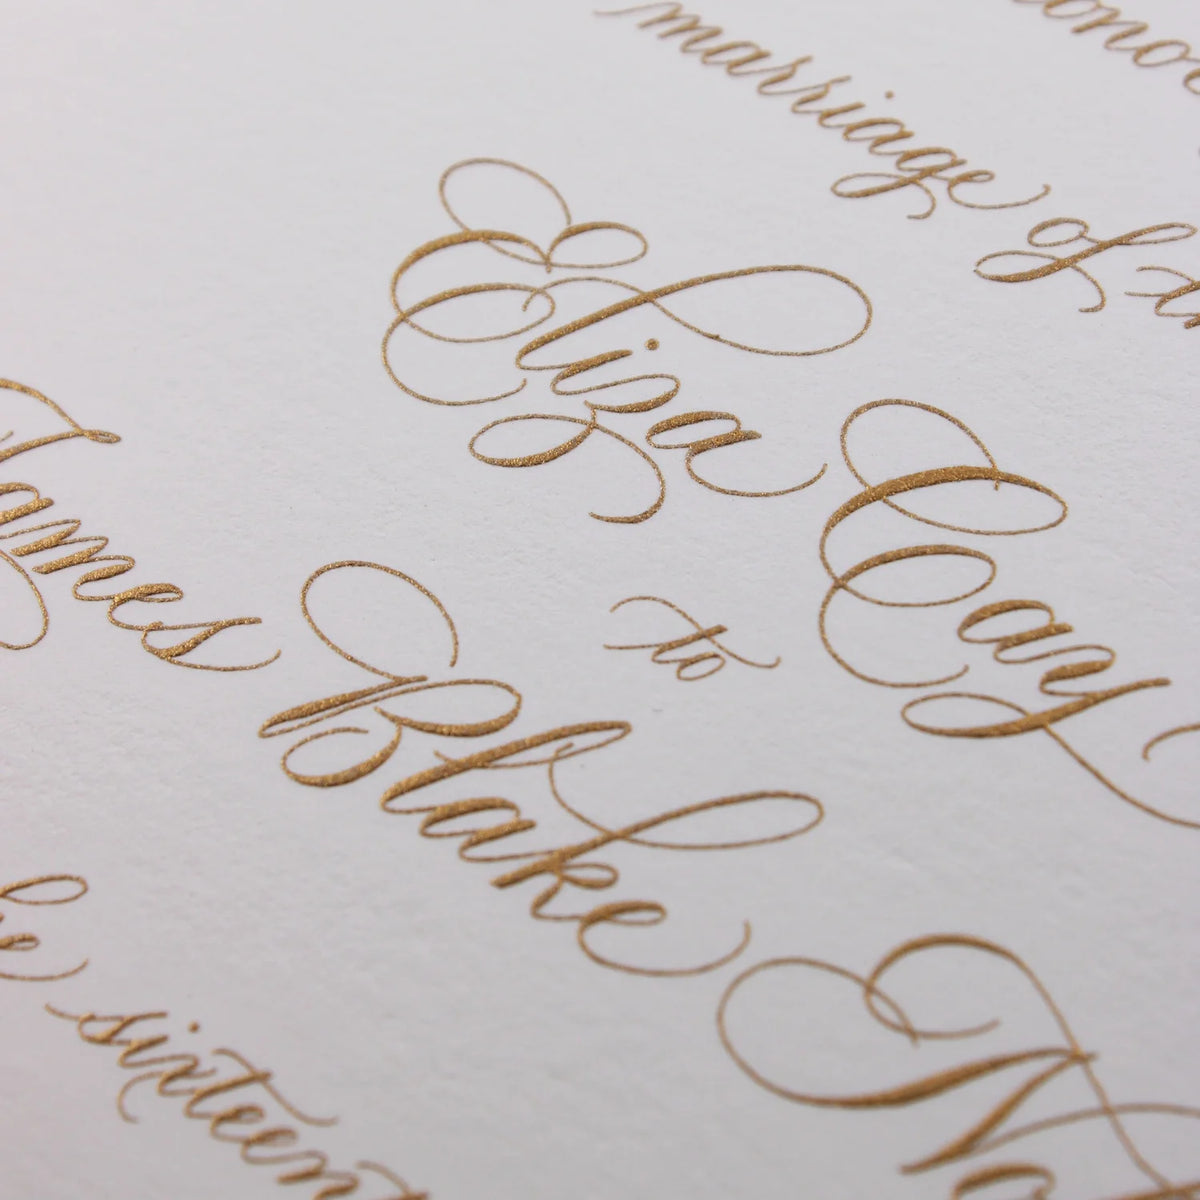 marriage of
Eliza Cay
to
James Blake
sixteent